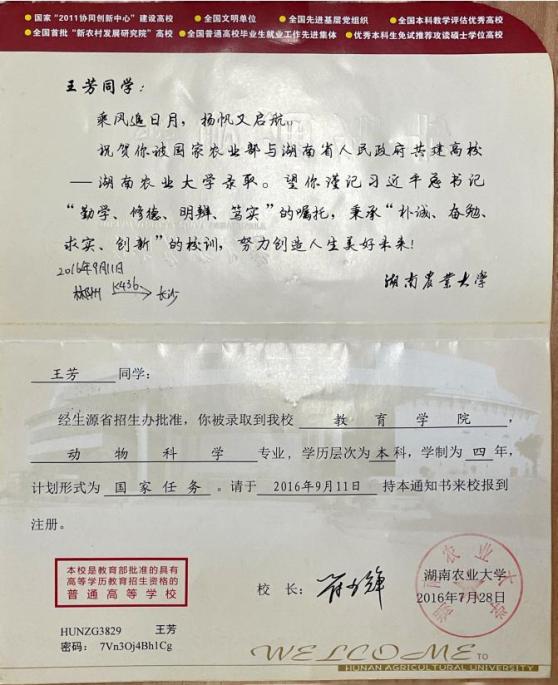 ●国家"2011协同创新中心"建设高校 ●全国文明单位 ●全国先进基层党组织 ●全国本科教学评估优秀高校
●全国首批"新农村发展研究院"高校 ●全国普通高校毕业生就业工作先进集体 ●优秀本科生免试推荐攻读硕士学位高校
王芳同学:
乘风追日月,扬帆又启航。
祝贺你被国家农业部与湖南省人民政府共建高校
—湖南农业大学录取。望你谨记习近平总书记
"勤学、修德、明辨、笃实"的嘱托,秉承"朴诚、奋勉、
求实、创新"的校训,努力创造人生美好未来!
2016年9月11日
郴州 K436 长沙
湖南农业大学
王芳 同学:
经生源省招生办批准,你被录取到我校 教育学院,
动物科学 专业,学历层次为本科,学制为四年,
计划形式为 国家任务。请于 2016年9月11日 持本通知书来校报到
注册。
本校是教育部批准的具有
高等学历教育招生资格的
普通高等学校
校 长:
湖南农业大学
2016年7月28日
湖南农业大学
HUNZG3829 王芳
密码: 7Vn3Oj4Bh1Cg
WELCOME TO
HUNAN AGRICULTURAL UNIVERSITY